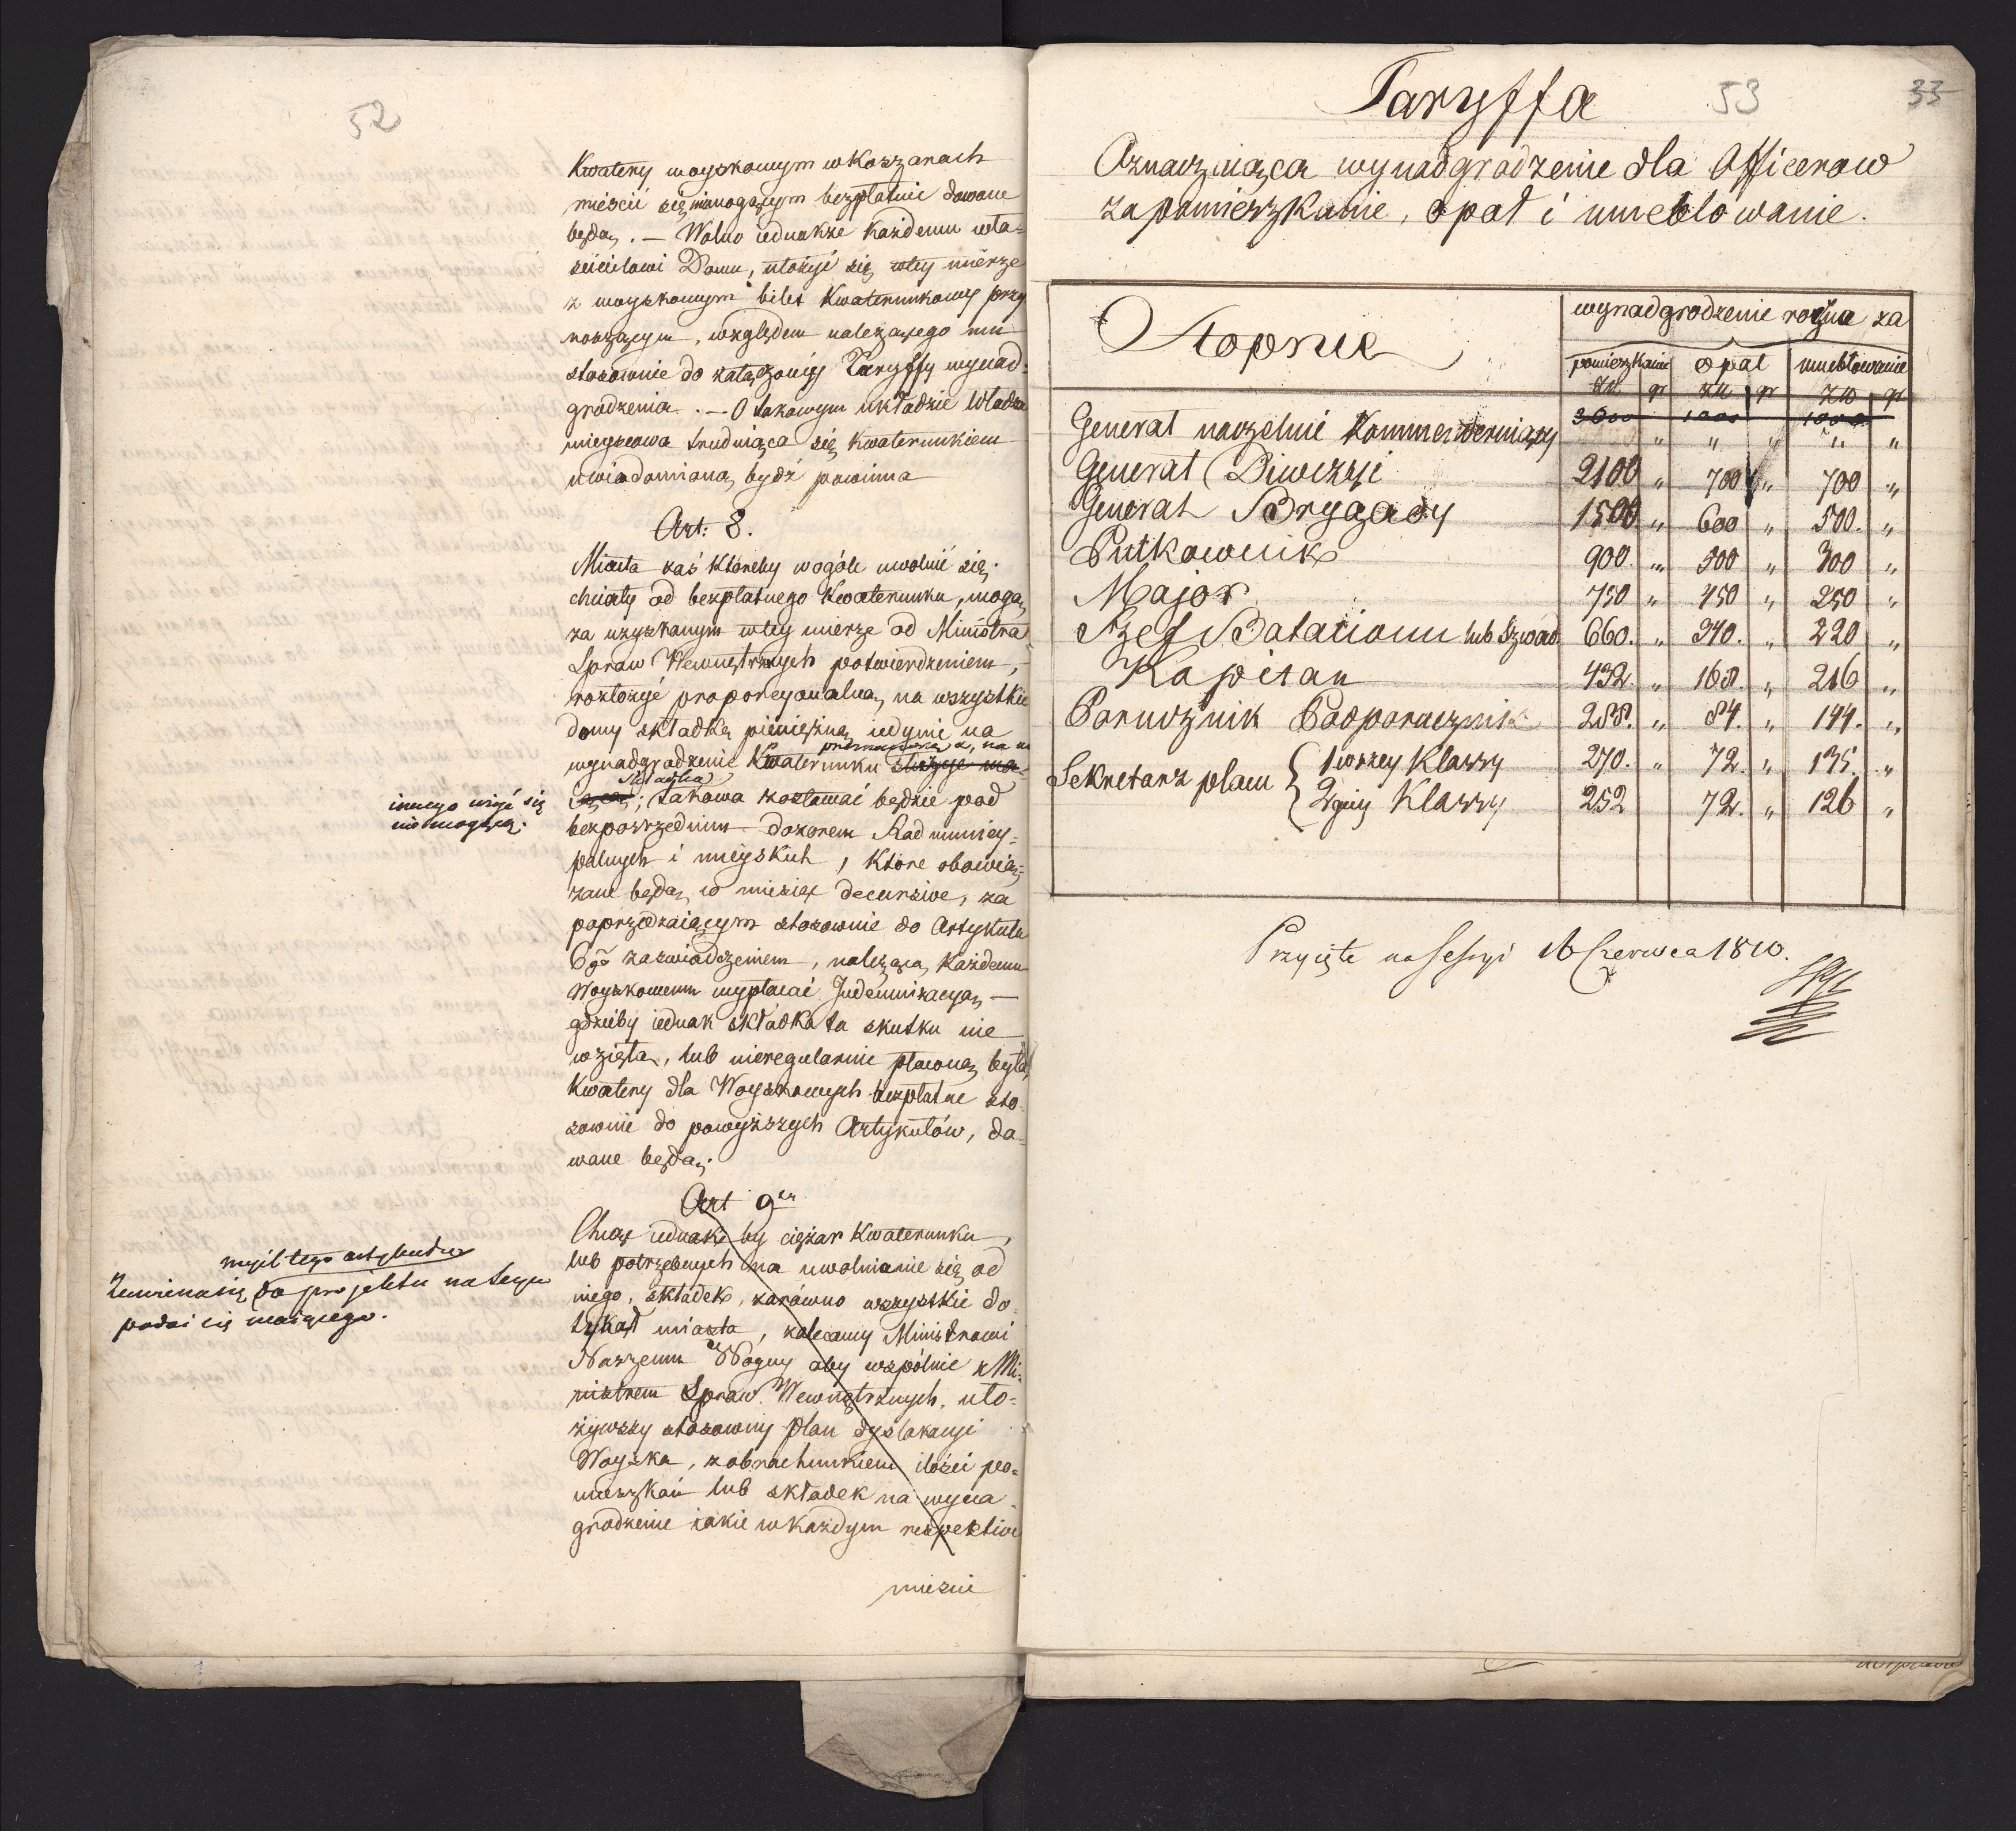 52
Kwatery woyskowym w Koszarach
mieścić się niemogącym bezpłatnie dawane
będą. — Wolno iednakże każdemu wła-
ścicielowi Domu, ułożyć się wtey mierze
z woyskowym bilet Kwaterunkowy przy
noszącym, względem należącego mu
stosownie do załączoney Taryffy wynad-
grodzenia. — O takowym układzie Władza
mieyscowa trudniąca się Kwaterunkiem
uwiadomiona bydź powinna
Art: 8.
Miasta zaś któreby wogóle uwolnić się
chciały od bezpłatnego Kwaterunku, mogą
za uzyskanym wtey mierze od Ministra
Spraw Wewnętrznych potwierdzeniem,
rozłożyć proporcyonalną, na wszystkie
domy składkę pieniężną iedynie na
wynadgrodzenie Kwaterunku służyć ma-
składka
iącą; takowa zostawać będzie pod
innego użyć się
nie mogącą.
bezposrzednim dozorem Rad municy-
palnych i mieyskich, które obowią-
zane będą, w miesiąc decursive, za
poprzedzaiącym stosownie do Artykułu
6go zaświadczeniem, należącą każdemu
Woyskowemu wypłacać Indemnizacyą, —
gdzieby iednak składka ta skutku nie
wzięła, lub nieregularnie płaconą była,
Kwatery dla Woyskowych bezpłatne sto-
sownie do powyższych Artykułów, da-
wane będą.
Art 9ty
Chcąc iednak by ciężar Kwaterunku,
lub potrzebnych na uwolnienie się od
niego, składek, zarówno wszystkie do-
tykał miasta, zalecamy Ministrowi
Naszemu Woyny aby wspólnie z Mi-
nistrem Spraw Wewnętrznych, uło-
żywszy stosowny plan dyslokacyi
Woyska, z obrachunkiem ilości po-
mieszkań lub składek na wyna-
grodzenie iakie w każdym respective
mieście
myśl tego artykułu
zamienia się do projektu na tego
podać się maiącego.
53
33
Taryffa
Oznaczaiąca wynadgrodzenie dla Officerow
za pomieszkanie, opał i umeblowanie.
Stopnie
wynadgrodzenie roczne za
pomieszkanie opał umeblowanie
Zł gr Zł gr Zł gr
Generał naczelnie Kommenderuiący 3000 " 1000 " 1000 "
Generał Diwizyi 2100 " 700 " 700 "
Generał Brygady 1500 " 600 " 500. "
Pułkownik 900. " 500 " 300 "
Major 750 " 450 " 250 "
Szef Batalionu lub Szwad. 660. " 340. " 220 "
Kapitan 432. " 168. " 216 "
Porucznik Podporucznik 288. " 84. " 144. "
Sekretarz placu { 1wszey Klassy 270. " 72. " 135. "
2giey Klassy 252 72. " 126 "
Przyięte na Sessyi 16 Czerwca 1810.